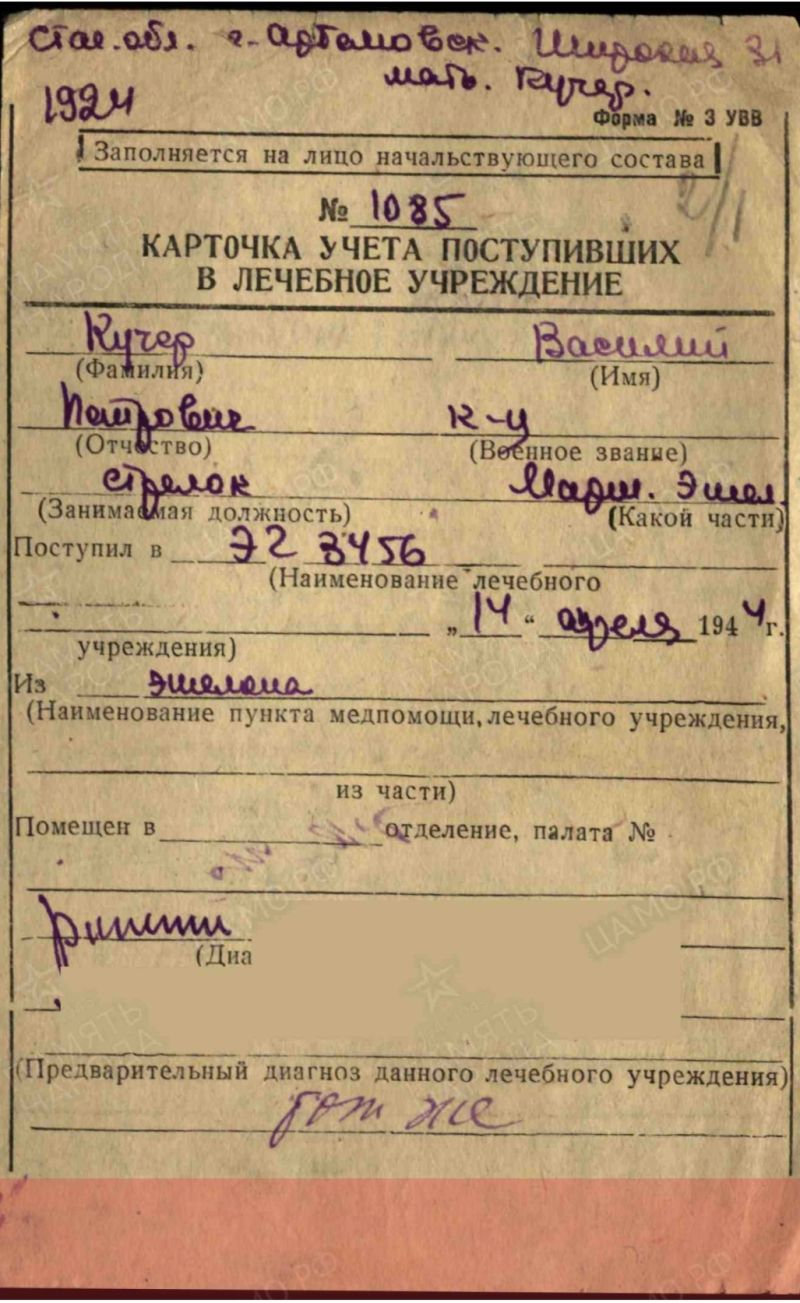 Стал.обл. г. Артемовск. Широкая 31
мать. Кучер.
1924
Форма № 3 УВВ
Заполняется на лицо начальствующего состава
№ 1085
КАРТОЧКА УЧЕТА ПОСТУПИВШИХ
В ЛЕЧЕБНОЕ УЧРЕЖДЕНИЕ
Кучер Василий
(Фамилия) (Имя)
Петрович к-ц
(Отчество) (Военное звание)
стрелок Марш. Эшел.
(Занимаемая должность) (Какой части)
Поступил в ЭГ 3456
(Наименование лечебного
„14“ апреля 1944г.
учреждения)
Из эшелона
(Наименование пункта медпомощи, лечебного учреждения,
из части)
Помещен в отделение, палата №
(Диа
(Предварительный диагноз данного лечебного учреждения)
тот же